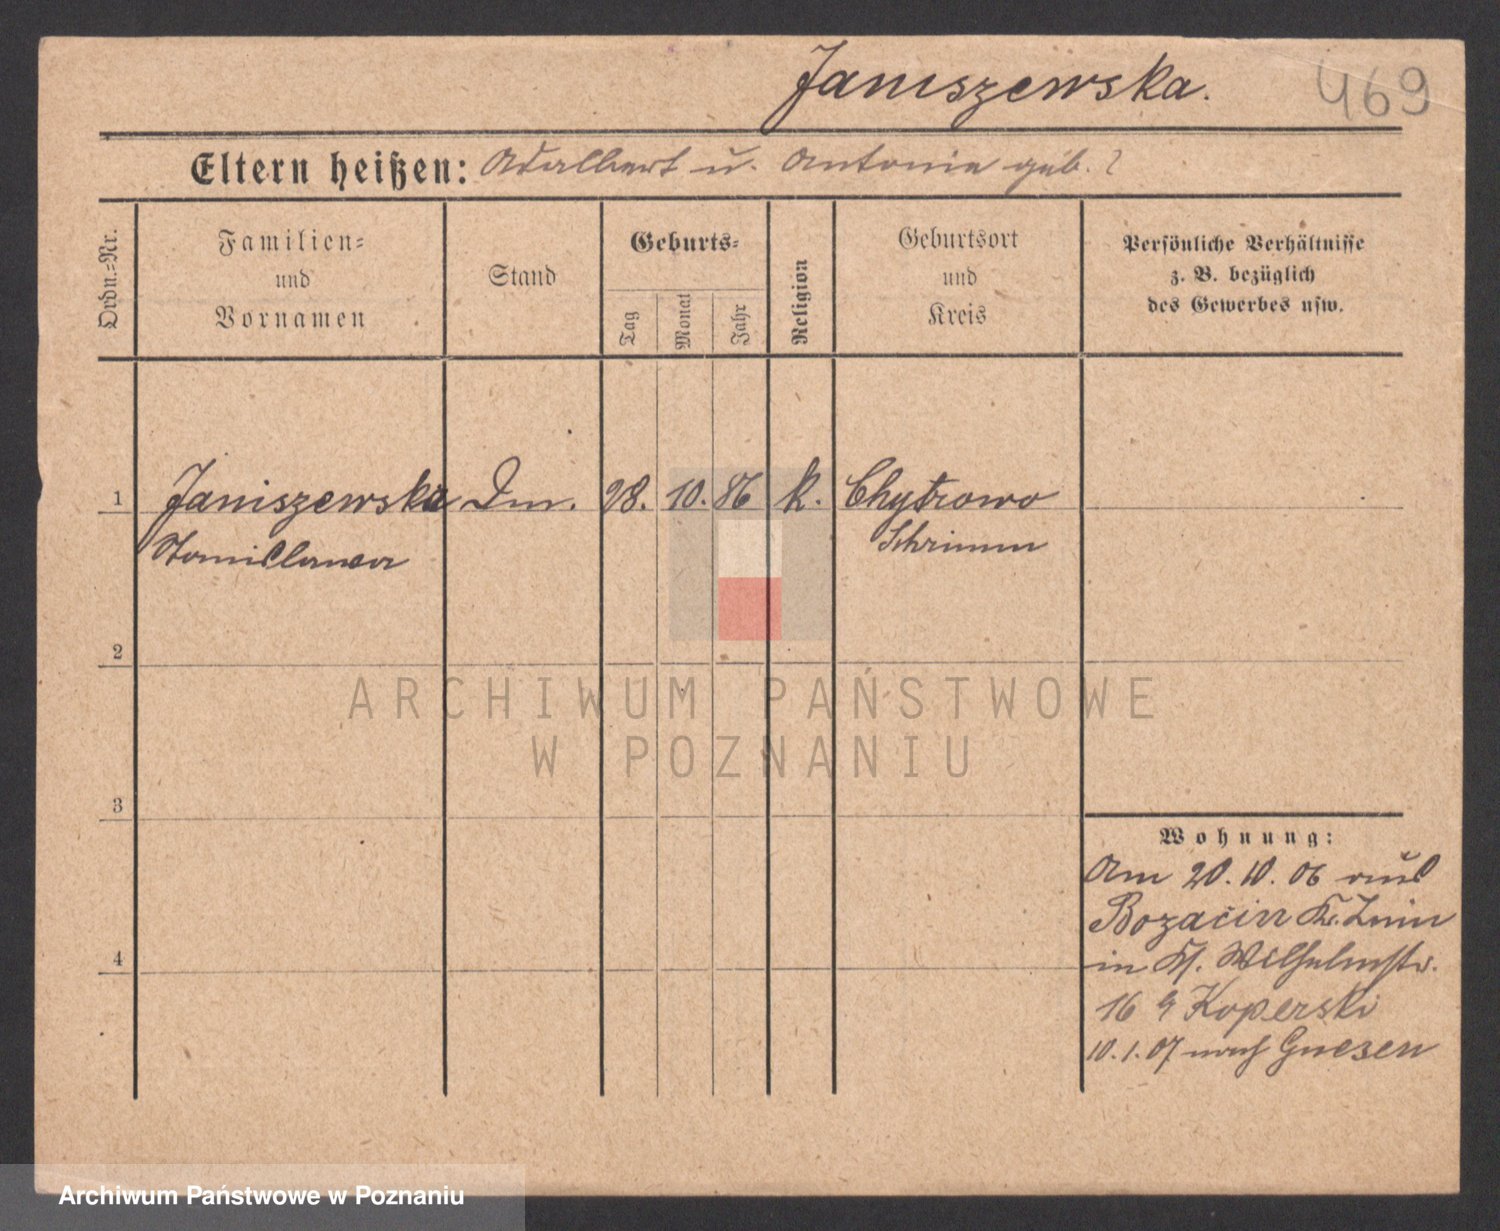 Janiszewska.
469
Eltern heißen: Adalbert u. Antonie geb. ?
Ordn.-Nr.
Familien-
und
Vornamen
Stand
Geburts-
Tag
Monat
Jahr
Religion
Geburtsort
und
Kreis
Persönliche Verhältnisse
z. B. bezüglich
des Gewerbes usw.
1 Janiszewska Dm. 28. 10. 86 k. Chytrowo
Stanislawa Schrimm
2
3
4
Wohnung:
Am 20. 10. 06 aus
Bozacin Kr. Znin
in Wilhelmstr.
16 Koperski
10. 1. 07 nach Gnesen
ARCHIWUM PAŃSTWOWE
W POZNANIU
Archiwum Państwowe w Poznaniu